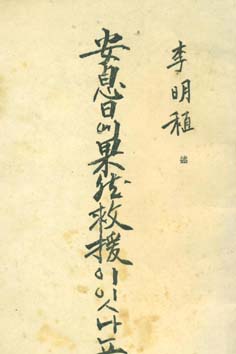 李明稙
安息日에果然救援이잇나